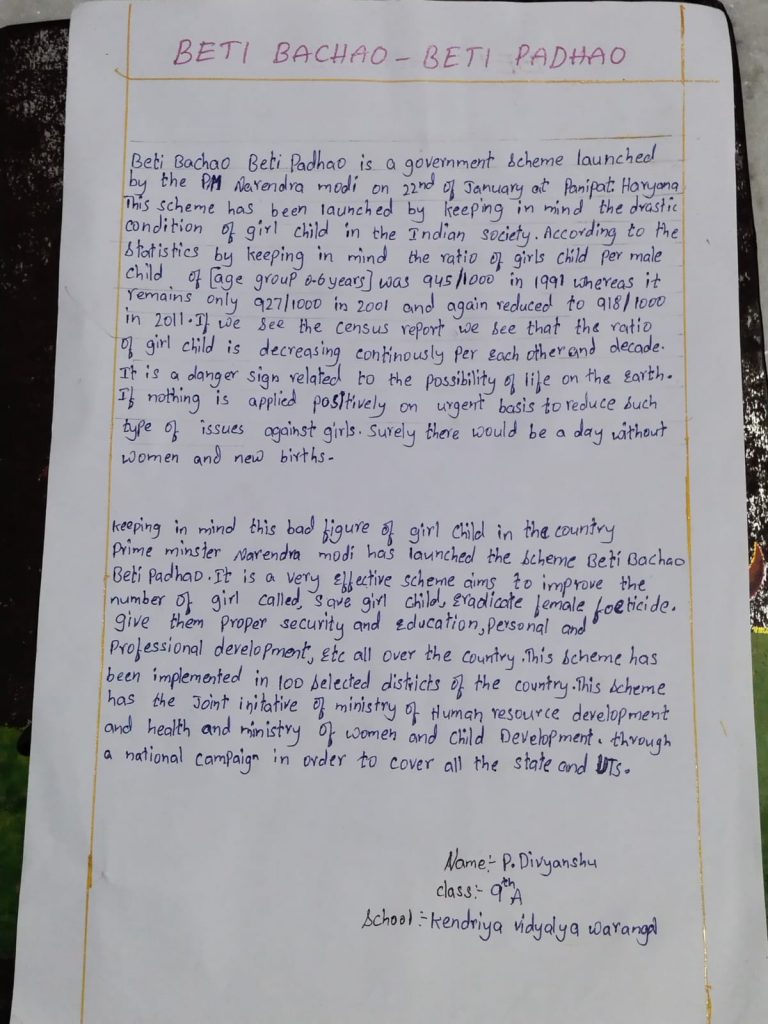 BETI BACHAO - BETI PADHAO
Beti Bachao Beti Padhao is a government scheme launched
by the PM Narendra modi on 22nd of January at Panipat Haryana
This scheme has been launched by keeping in mind the drastic
condition of girl child in the Indian society. According to the
statistics by keeping in mind the ratio of girls child per male
child of [age group 0-6 years] was 945/1000 in 1991 whereas it
remains only 927/1000 in 2001 and again reduced to 918/1000
in 2011. If we see the census report we see that the ratio
of girl child is decreasing continously per each other and decade.
It is a danger sign related to the possibility of life on the Earth.
If nothing is applied positively on urgent basis to reduce such
type of issues against girls. Surely there would be a day without
women and new births.
keeping in mind this bad figure of girl child in the country
Prime minster Narendra modi has launched the scheme Beti Bachao
Beti Padhao. It is a very Effective scheme aims to improve the
number of girl called, save girl child, Eradicate female foeticide.
give them proper security and Education, personal and
Professional development, Etc all over the country. This scheme has
been implemented in 100 selected districts of the country. This scheme
has the Joint initative of ministry of Human resource development
and health and ministry of women and child Development. through
a national campaign in order to cover all the state and UTs.
Name:- P. Divyanshu
class:- 9th A
School:- Kendriya vidyalya warangal